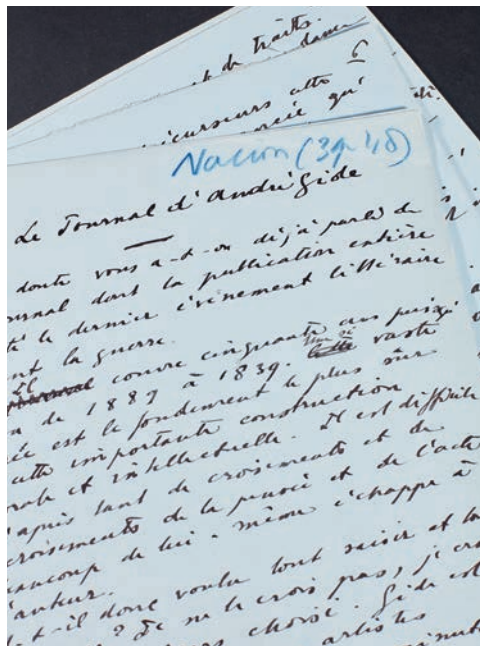 de traits.
danse
6
curseurs
qu'
Nacion (3p 48)
Le Journal d'André Gide
doute vous a-t-on déjà parlé de
urnal dont la publication entière
té le dernier événement littéraire
nt la guerre.
Il couvre cinquante ans puisqu'
n de 1889 à 1839. Une si vaste
ée est le fondement le plus sûr
cette importante construction
orale et intellectuelle. Il est difficile
après tant de croisements et de
croisements de la pensée et de l'acte
eaucoup de lui-même échappe à
'auteur.
t-il donc voulu tout saisir et to
? Je ne le crois pas, je cro
urs choisi. Gide est
artistes